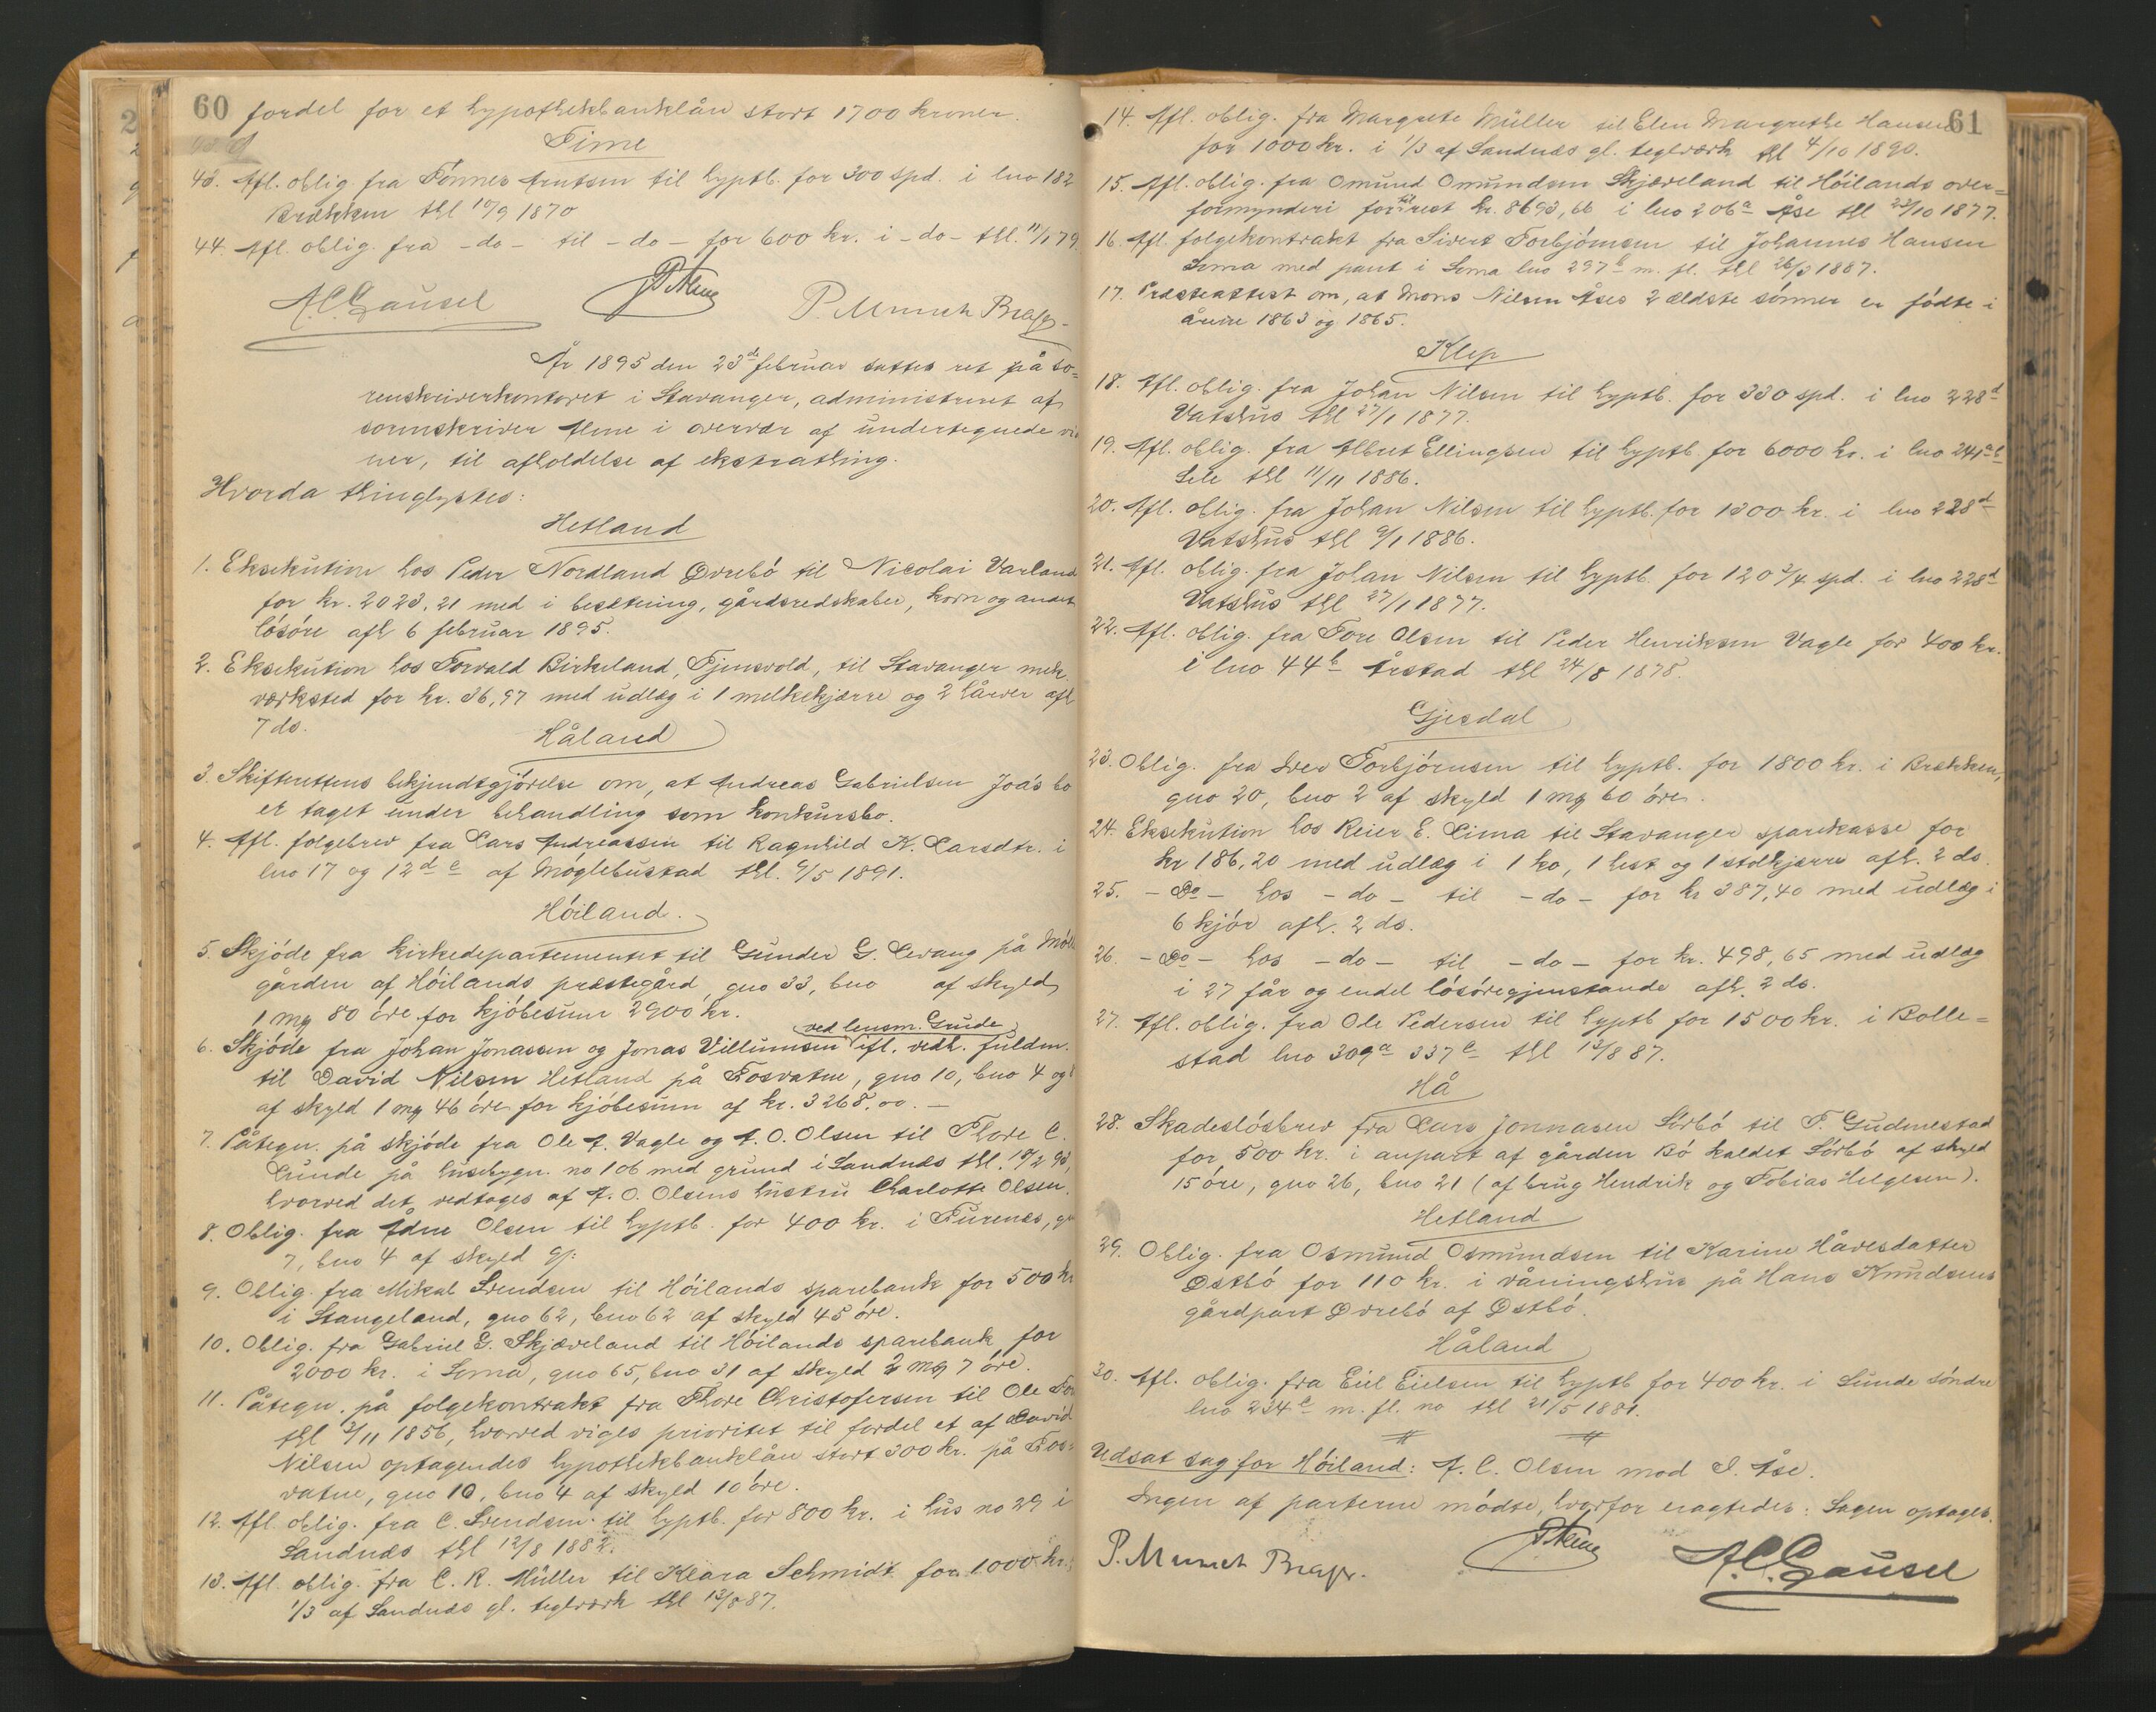 60 fordel for et hypothekbanklån stort 1700 kroner.
Time
43. Afl. oblig. fra Tönnes Arntsen til hyptb. for 300 spd. i lno 182
Brækken thl 10/9 1870
44. Afl. oblig. fra -do- til -do- for 600 kr. i -do- thl. 11/1 79
A.C. Gausel P. Munch
År 1895 den 23d februar sattes ret på so=
renskriverkontoret i Stavanger, administreret af
sorenskriver i overvær af undertegnede vid
ner, til afholdelse af ekstrathing.
Hvorda thinglystes:
Hetland
1. Eksekution hos Peder Nordland Øvrebö til Nicolai Varland
for kr. 2023,21 med i besætning, gårdsredskaber, korn og andet
lösöre afh 6 februar 1895.
2. Eksekution hos Torvald Birkeland, Tjensvold, til Stavanger mek.
værksted for kr. 36,97 med udlæg i 1 melkekjærre og 2 hårver afh
7 ds.
Håland
3. Skifterettens bekjendtgjörelse om, at Andreas Gabrielsen Joås bo
er taget under behandling som konkursbo.
4. Afl. folgebrev fra Lars Andreassen til Ragnhild K. Larsdtr. i
lno 17 og 12 d e af Möglebustad thl. 6/5 1891.
Höiland.
5. Skjöde fra kirkedepartementet til Gunder G. Levang på Mölle
gården af Höilands præstegård, gno 33, bno af skyld
1 mg 80 öre for kjöbesum 2900 kr.
ved lensm. Grude
6. Skjöde fra Johan Jonassen og Jonas Villumsen ifl. vedh. fuldm.
til David Nilsen Hetland på Fosvatne, gno 10, bno 4 og 8
af skyld 1 mg 46 öre for kjöbesum af kr. 3268,00. —
7. Påtegn. på skjöde fra Ole A. Vagle og A. O. Olsen til Thore C.
Lunde på husebygn. no 106 med grund i Sandnæs thl. 18/2 93,
hvorved det vedtages af A. O. Olsens hustru Charlotte Olsen.
8. Oblig. fra Ådne Olsen til hyptb. for 400 kr. i Furenæs, gno
7, bno 4 af skyld
9. Oblig. fra Mikal Svendsen til Höilands sparebank for 500 kr
i Stangeland, gno 62, bno 62 af skyld 45 öre.
10. Oblig. fra Gabriel G. Skjæveland til Höilands sparebank for
2000 kr. i Soma, gno 65, bno 31 af skyld 2 mg 7 öre.
11. Påtegn. på folgekontrakt fra Thore Christofersen til Ole
thl 3/11 1856, hvorved viges prioritet til fordel et af David
Nilsen optagendes hypothekbanklån stort 300 kr. på Fos=
vatne, gno 10, bno 4 af skyld 10 öre.
12. Afl. oblig. fra C. Svendsen til hyptb. for 800 kr. i hus no 29 i
Sandnæs thl 12/8 1882.
13. Afl. oblig. fra C. R. Müller til Klara Schmidt for 1000 kr. i
1/3 af Sandnæs gl. teglværk thl 13/8 87.
61
14. Afl. oblig. fra Margrete Müller til Elen Margrethe Hansen
for 1000 kr. i 1/3 af Sandnæs gl. teglværk thl 4/10 1890.
15. Afl. oblig. fra Omund Omundsen Skjæveland til Höilands over=
formynderi for rest kr. 8693,66 i lno 206a Åse thl 23/10 1877.
16. Afl. folgekontrakt fra Sivert Torbjörnsen til Johannes Hansen
Soma med pant i Soma lno 297b m. fl. thl 26/3 1887.
17. Præsteattest om, at Mons Nilsen Åses 2 ældste sönner er födte i
årene 1863 og 1865.
Klep
18. Afl. oblig. fra Johan Nilsen til hyptb. for 330 spd. i lno 228d
Vatshus thl 27/1 1877.
19. Afl. oblig. fra Albret Ellingsen til hyptb. for 6000 kr. i lno 241ab
Sele thl 11/11 1886.
20. Afl. oblig. fra Johan Nilsen til hyptb. for 1300 kr. i lno 228d
Vatshus thl 9/1 1886.
21. Afl. oblig. fra Johan Nilsen til hyptb. for 120 3/4 spd. i lno 228d
Vatshus thl 27/1 1877.
22. Afl. oblig. fra Tore Olsen til Peder Henriksen Vagle for 400 kr.
i lno 44b Årstad thl 24/8 1878.
Gjesdal
23. Oblig. fra Iver Torbjörnsen til hyptb. for 1800 kr. i Brækken,
gno 20, bno 2 af skyld 1 mg 60 öre.
24. Eksekution hos Reier E. Lima til Stavanger sparekasse for
kr 186,20 med udlæg i 1 ko, 1 hest og 1 stolkjærre afh. 2 ds.
25. -Do- hos -do- til -do- for kr 387,40 med udlæg i
6 kjör afh. 2 ds.
26. -Do- hos -do- til -do- for kr. 498,65 med udlæg
i 27 får og endel lösöregjenstande afh. 2 ds.
27. Afl. oblig. fra Ole Pedersen til hyptb for 1500 kr. i Bolle=
stad lno 309a 337c thl 13/8 87.
Hå
28. Skadeslösbrev fra Lars Jonnasen Sörbö til T. Gudmestad
for 500 kr. i anpart af gården Bö kaldet Sörbö af skyld
15 öre, gno 26, bno 21 (af brug Hendrik og Tobias Helgesen).
Hetland
29. Oblig. fra Osmund Osmundsen til Karine Håvesdatter
Østbö for 110 kr. i våningshus på Hans Knudsens
gårdpart Øvrebö af Østbö.
Håland
30. Afl. oblig. fra Eiel Eielsen til hyptb for 400 kr. i Sunde söndre
lno 234c m. fl. no thl 21/5 1881.
Udsat sag for Höiland: A. C. Olsen mod S. Åse.
Ingen af parterne mödte, hvorfor eragtedes: Sagen optages.
P. Munch A.C. Gausel